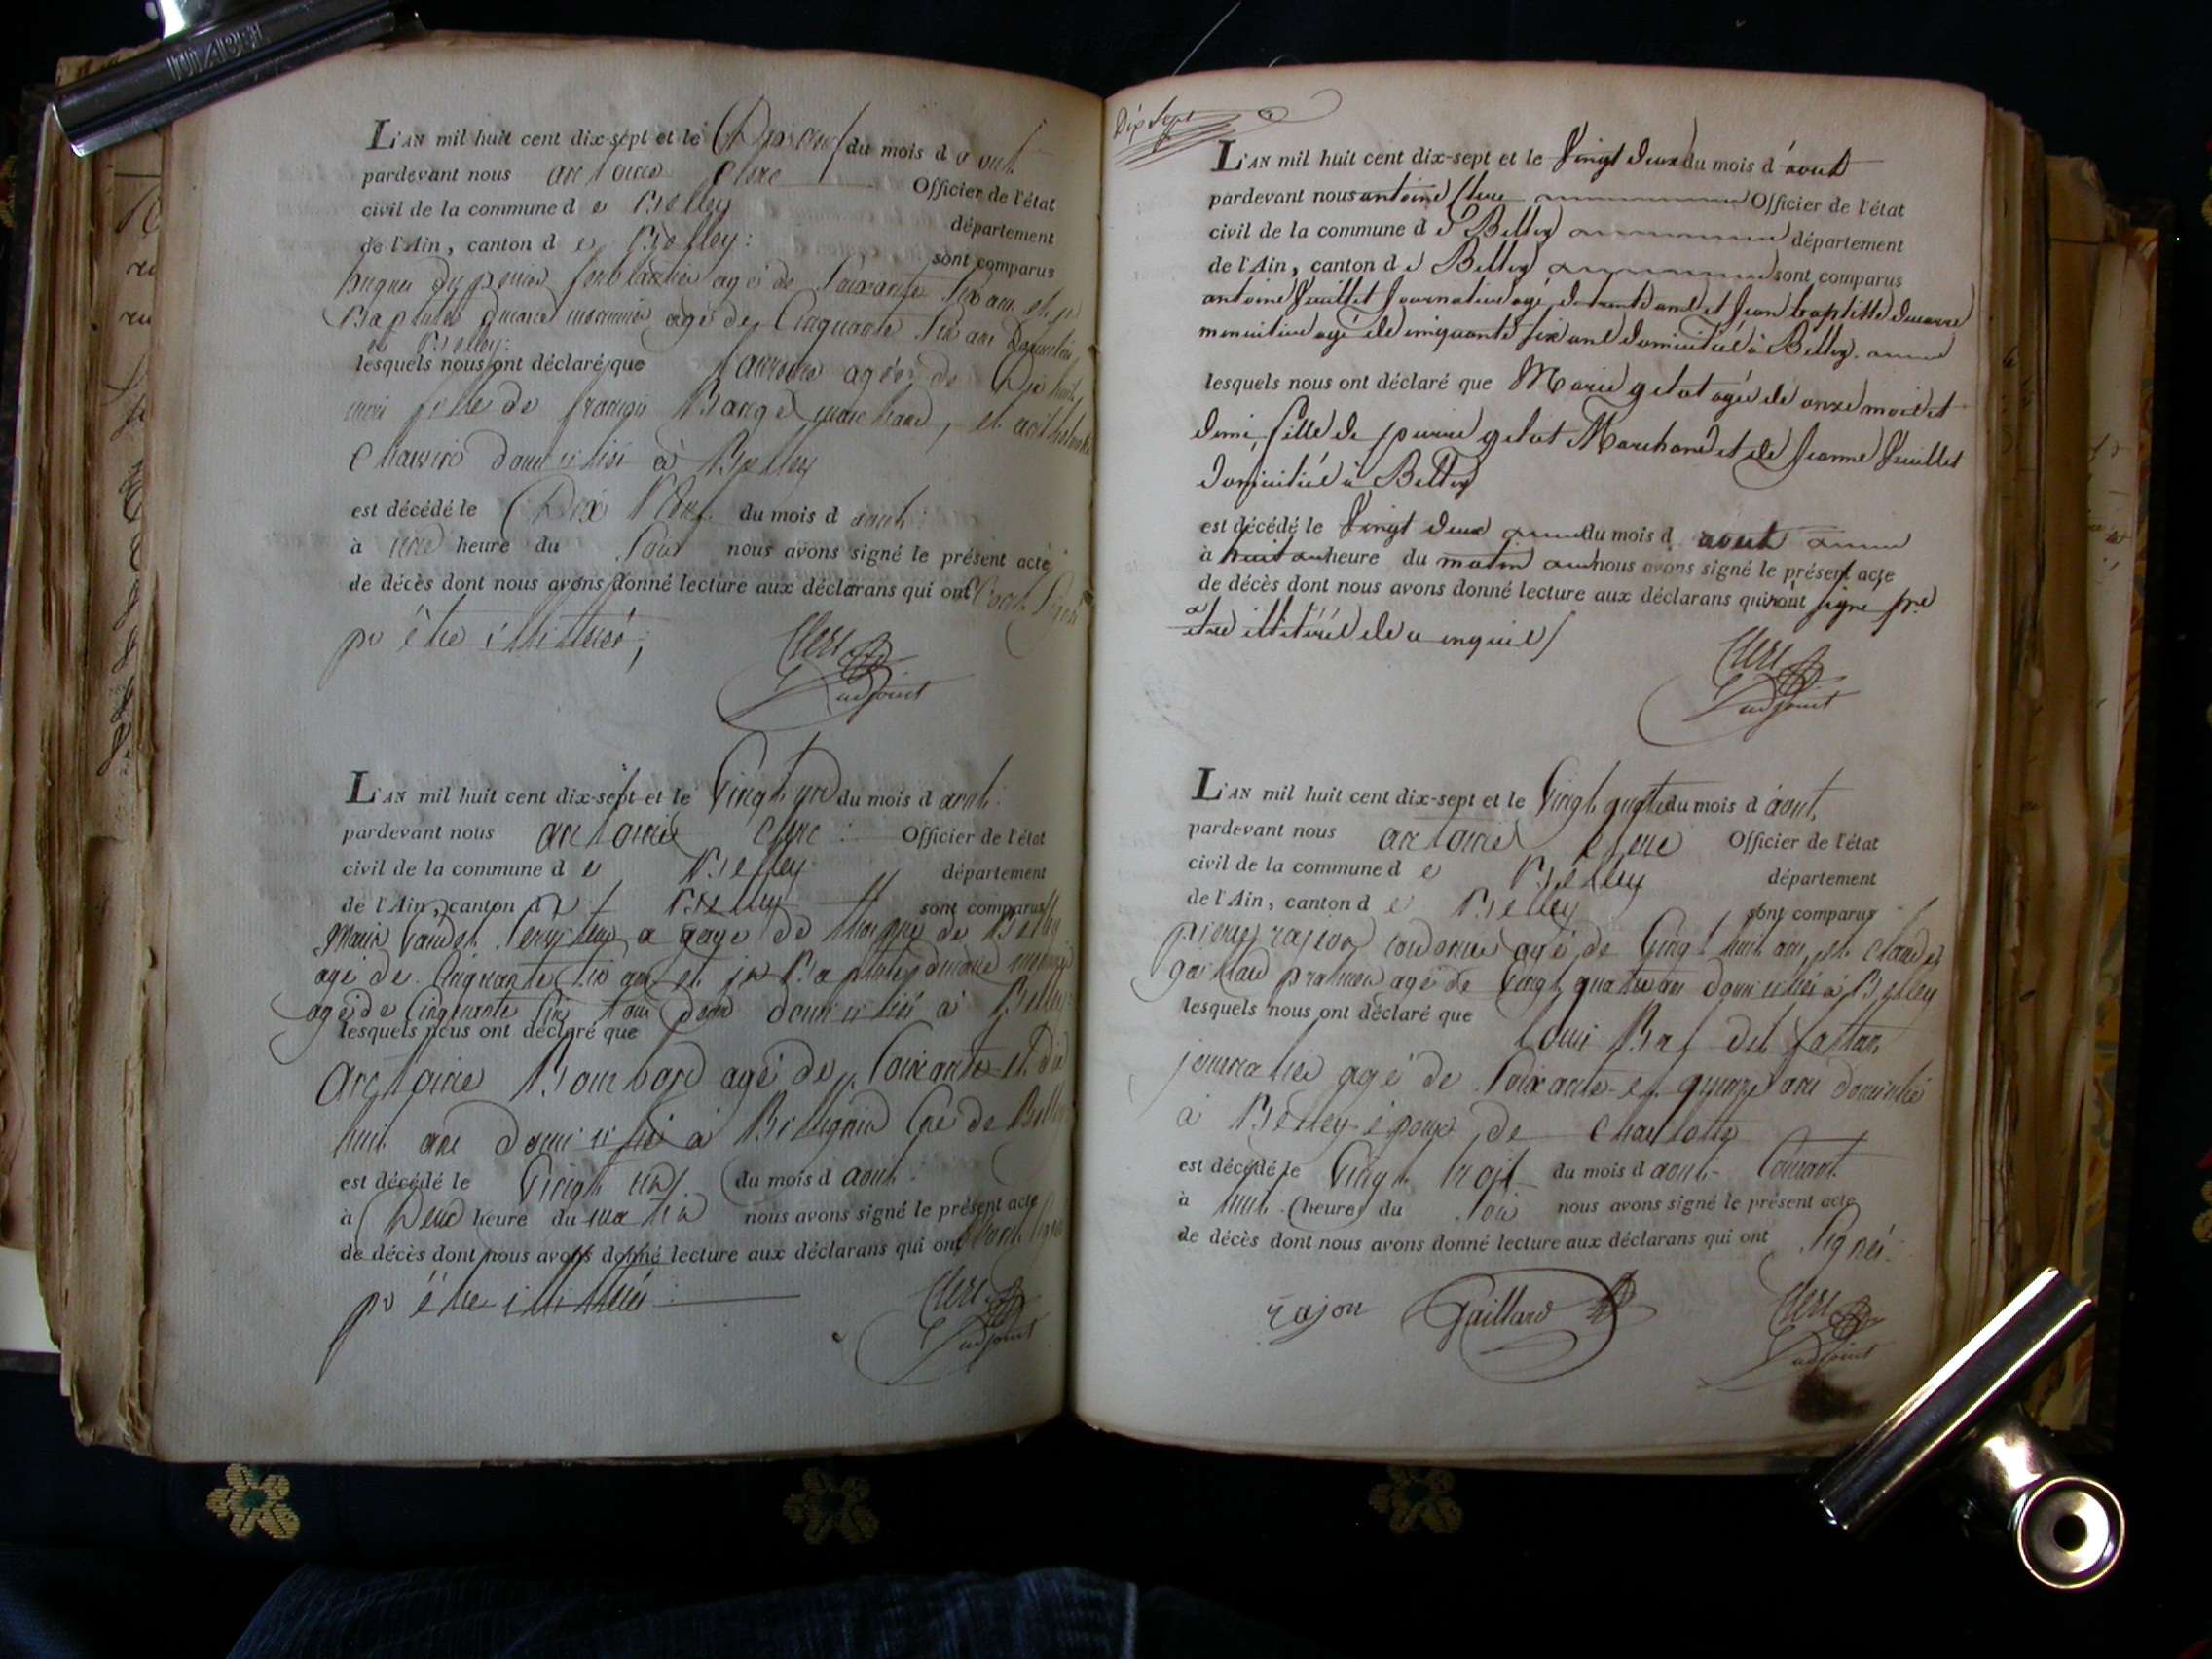 L'AN mil huit cent dix-sept et le Dix neuf du mois d aout
pardevant nous antoine Clerc Officier de l'état
civil de la commune d e Belley département
de l'Ain, canton d e Belley: sont comparus
hugues ferblantier agé de Soixante Six ans et jn
Baptiste Ducarre menuisier agé de Cinquante Six ans Domiciliés
à Belley:
lesquels nous ont déclaré que agée de Dix huit
mois fille de françois marchand, et
domiciliés à Belley
est décédé le Dix Neuf du mois d aout:
à une heure du Soir nous avons signé le présent acte
de décès dont nous avons donné lecture aux déclarans qui ont
pr être illitterés;
Clerc
adjoint
L'AN mil huit cent dix-sept et le Vingt un du mois d aout:
pardevant nous antoine Clerc: Officier de l'état
civil de la commune d e Belley département
de l'Ain, canton d e Belley sont comparus
agé de Cinquante Six ans et jn Baptiste Ducarre
agé de Cinquante Six tous deux domiciliés à Belley
lesquels nous ont déclaré que
antoine Bourbord agé de Soixante et dix
huit ans domicilié à Billignin Cne de Belley
est décédé le Vingt un du mois d aout:
à Deux heure du matin nous avons signé le présent acte
de décès dont nous avons donné lecture aux déclarans qui ont
pr être illitterés:
Clerc
adjoint
Dix Sept
L'AN mil huit cent dix-sept et le Vingt deux du mois d'aout
pardevant nous antoine Clerc Officier de l'état
civil de la commune d e Belley département
de l'Ain, canton d e Belley sont comparus
antoine Juillet Journalier agé de trente ans et Jean baptiste ducarre
menuisier agé de cinquante six ans domiciliés à Belley
lesquels nous ont déclaré que Marie gelot agée de onze mois et
demi fille de pierre gelot Marchand et de Jeanne Juillet
domiciliés à Belley
est décédé le Vingt deux du mois d aout
à huit heure du matin nous avons signé le présent acte
de décès dont nous avons donné lecture aux déclarans qui n'ont signé pr
être illitérés de ce enquis
Clerc
adjoint
L'AN mil huit cent dix-sept et le Vingt quatre du mois d aout
pardevant nous antoine Clerc Officier de l'état
civil de la commune d e Belley département
de l'Ain, canton d e Belley sont comparus
pierre rajeon cordonnier agé de Vingt huit ans, et claude
gaillard praticien agé de Vingt quatre ans domiciliés à Belley
lesquels nous ont déclaré que Louis
journalier agé de Soixante et quinze ans domicilié
à Belley époux de Charlotte
est décédé le Vingt trois du mois d aout Courant
à huit heures du Soir nous avons signé le présent acte
de décès dont nous avons donné lecture aux déclarans qui ont Signés.
rajon Gaillard Clerc
adjoint